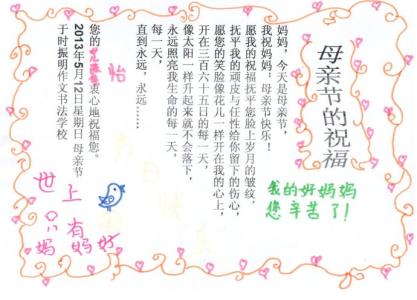 母亲节的祝福
妈妈，今天是母亲节，
我祝妈妈：母亲节快乐！
愿我的祝福抚平您脸上岁月的皱纹，
抚平我的顽皮与任性给你留下的伤心，
愿您的笑脸像花儿一样开在我的心上，
开在三百六十五日的每一天，
像太阳一样升起来就不会落下，
永远照亮我生命的每一天，
每一天，
直到永远，永远……
您的 怡 衷心地祝福您。
2013年5月12日星期日 母亲节
于时振明作文书法学校
我的好妈妈
您辛苦了！
世上
只有
妈妈好
节日快乐